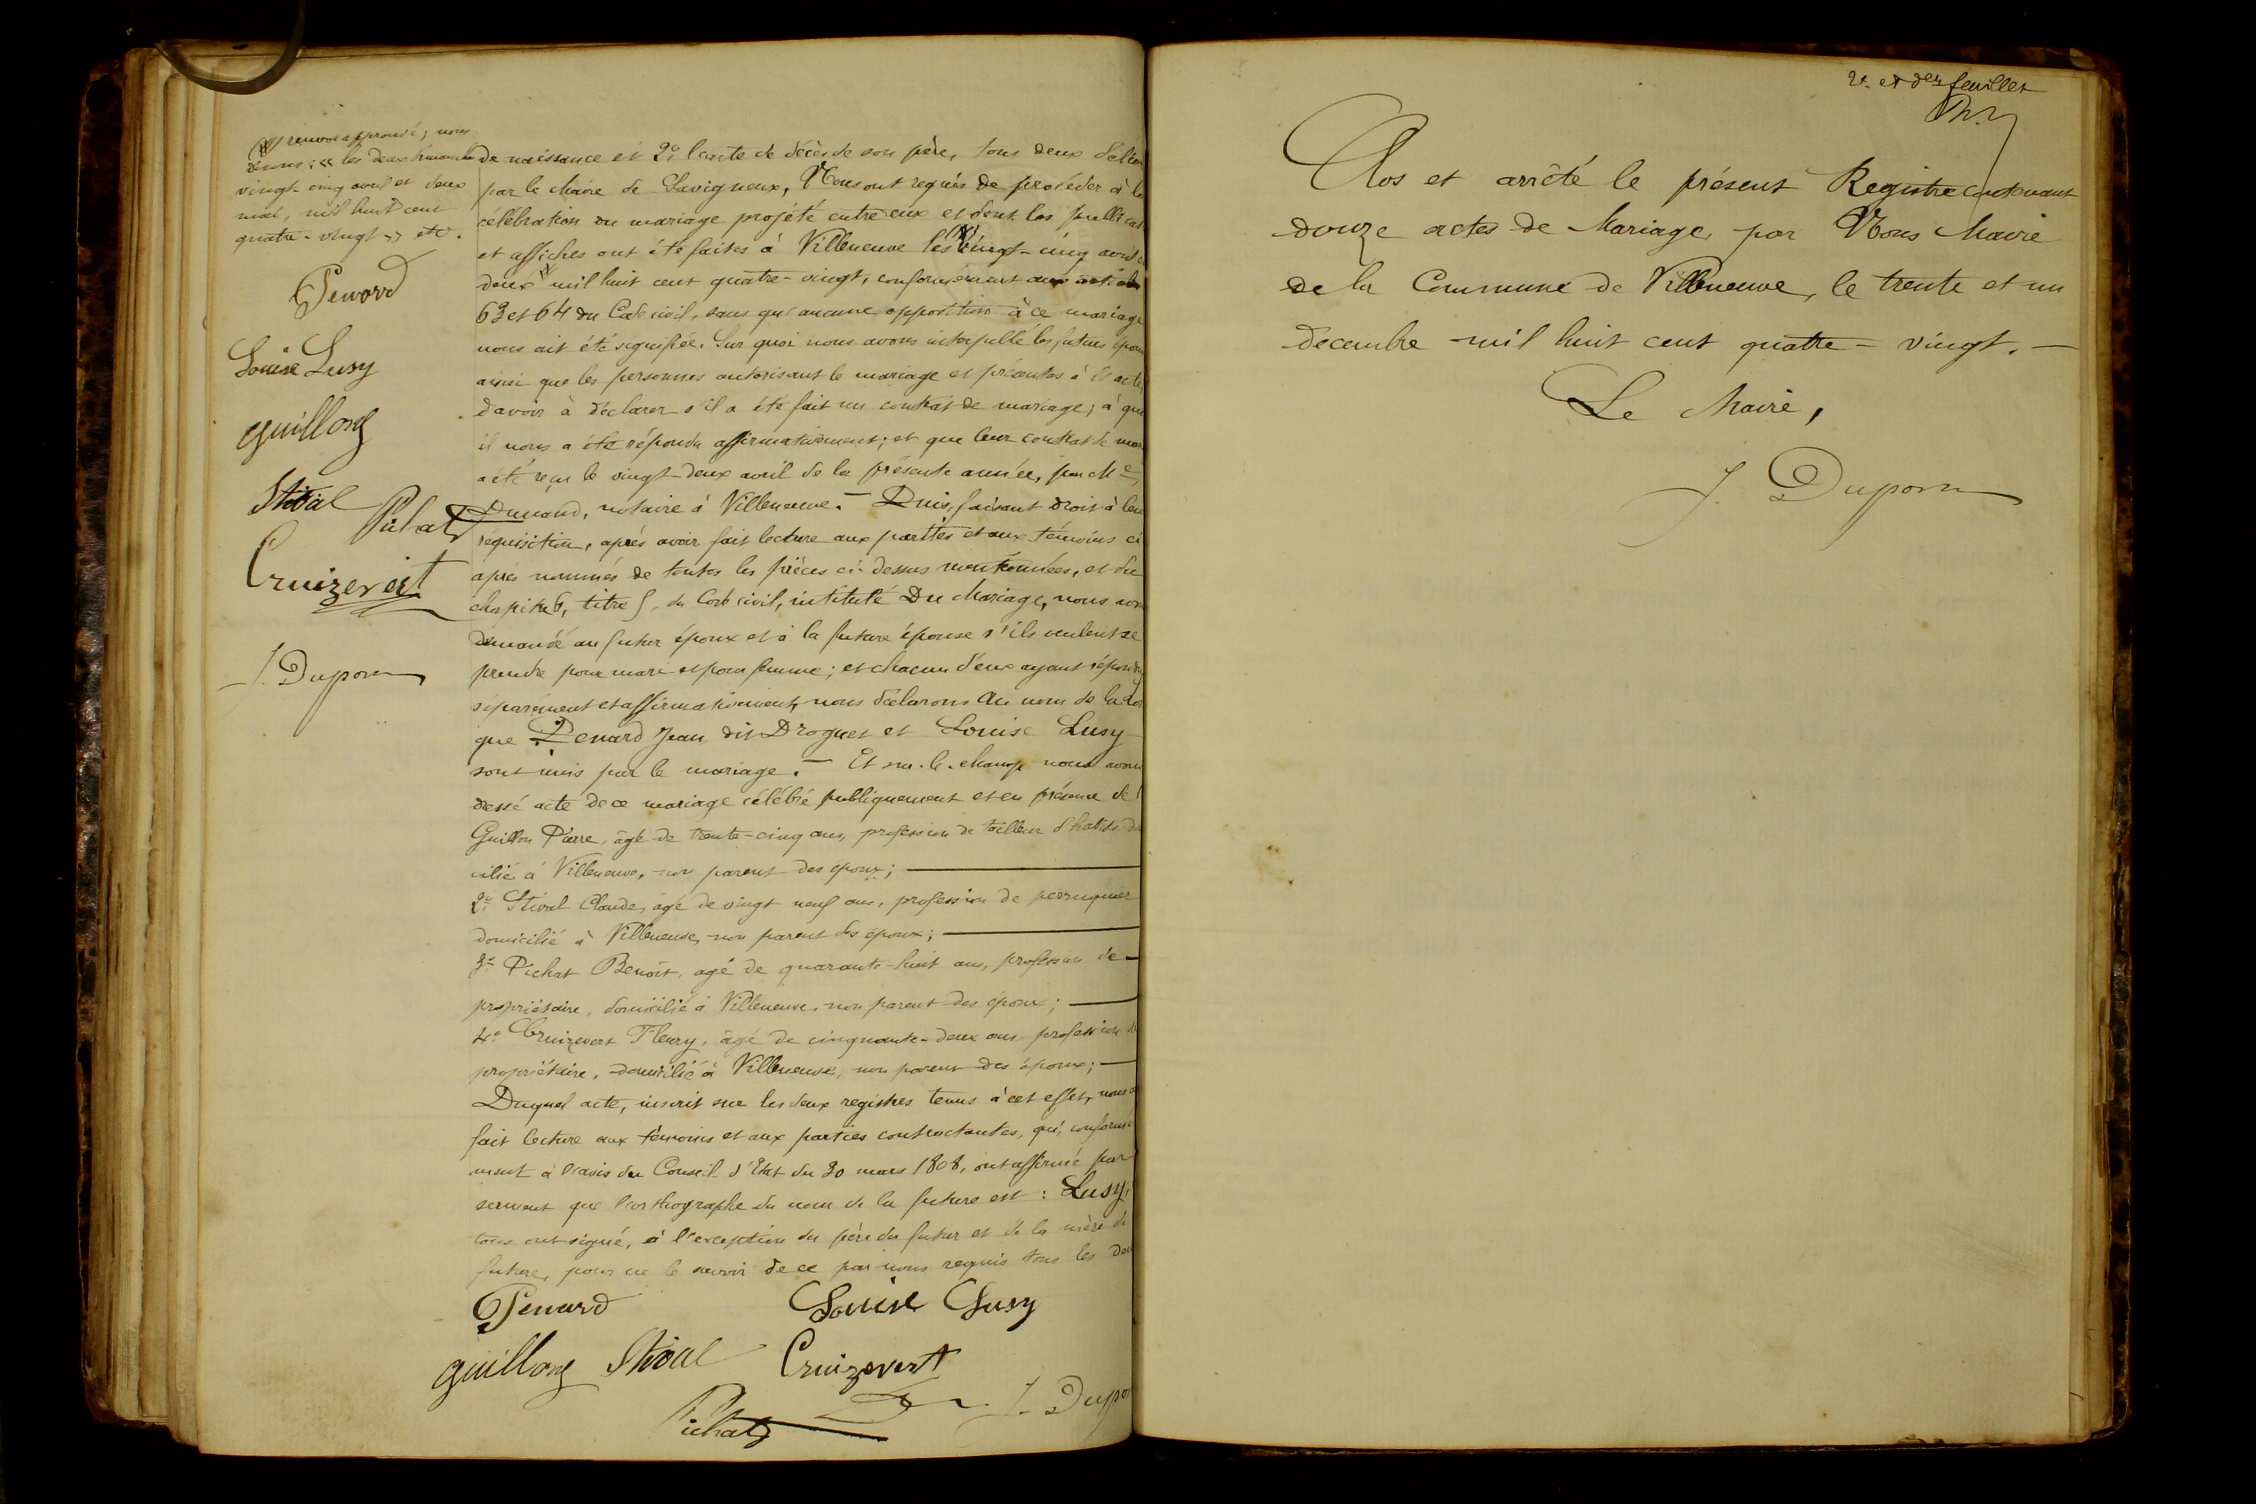 renvoi approuvé; nous
disons: "les deux dimanches
vingt-cinq avril et deux
mai, mil huit cent
quatre-vingt" etc.
Penard
Louise Lusy
Guillon
Stival
Pichat
Cruizevert
J. Dupom
de naissance et 2° l'acte de décès de son père, tous deux délivr
par le Maire de Savigneux, Nous ont requis de procéder à la
célébration du mariage projeté entre eux et dont les publicat
et affiches ont été faites à Villeneuve les vingt-cinq avril
deux mil huit cent quatre-vingt, conformément aux articles
63 et 64 du Code civil, sans qu'aucune opposition à ce mariage
nous ait été signifiée. Sur quoi nous avons interpellé les futurs épou
ainsi que les personnes autorisant le mariage et présentes à l'acte
d'avoir à déclarer s'il a été fait un contrat de mariage; à quoi
il nous a été répondu affirmativement; et que leur contrat de mar
a été reçu le vingt-deux avril de la présente année, par Me
Dunand, notaire à Villeneuve. — Puis, faisant droit à leur
réquisition, après avoir fait lecture aux parties et aux témoins ci
après nommés de toutes les pièces ci-dessus mentionnées, et du
chapitre 6, titre 5, du Code civil, intitulé Du Mariage, nous avon
demandé au futur époux et à la future épouse s'ils veulent se
prendre pour mari et pour femme; et chacun d'eux ayant répondu
séparément et affirmativement, nous déclarons au nom de la Loi
que Penard Jean dit Droguet et Louise Lusy
sont unis par le mariage. — Et sur-le-champ nous avons
dressé acte de ce mariage célébré publiquement et en présence de 1
Guillon Pierre, âgé de trente-cinq ans, profession de tailleur d'habits do
cilié à Villeneuve, non parent des époux;
2° Stival Claude, âgé de vingt neuf ans, profession de perruquier
domicilié à Villeneuve, non parent des époux;
3° Pichat Benoît, âgé de quarante-huit ans, profession de
propriétaire, domicilié à Villeneuve, non parent des époux;
4° Cruizevert Fleury, âgé de cinquante-deux ans, profession de
propriétaire, domicilié à Villeneuve, non parent des époux;
Duquel acte, inscrit sur les deux registres tenus à cet effet, nous a
fait lecture aux témoins et aux parties contractantes, qui, conformé
ment à l'avis du Conseil d'Etat du 30 mars 1808, ont affirmé par
serment que l'orthographe du nom de la future est: Lusy;
tous ont signé, à l'exception du père du futur et de la mère de
future, pour ne le savoir de ce par nous requis tous les deu
Penard Louise Lusy
Guillon Stival Cruizevert
Pichat J. Dupom
2e et der feuillet
Clos et arrêté le présent Registre contenant
douze actes de Mariage, par Nous Maire
de la Commune de Villeneuve, le trente et un
décembre mil huit cent quatre-vingt. —
Le Maire,
J. Dupom